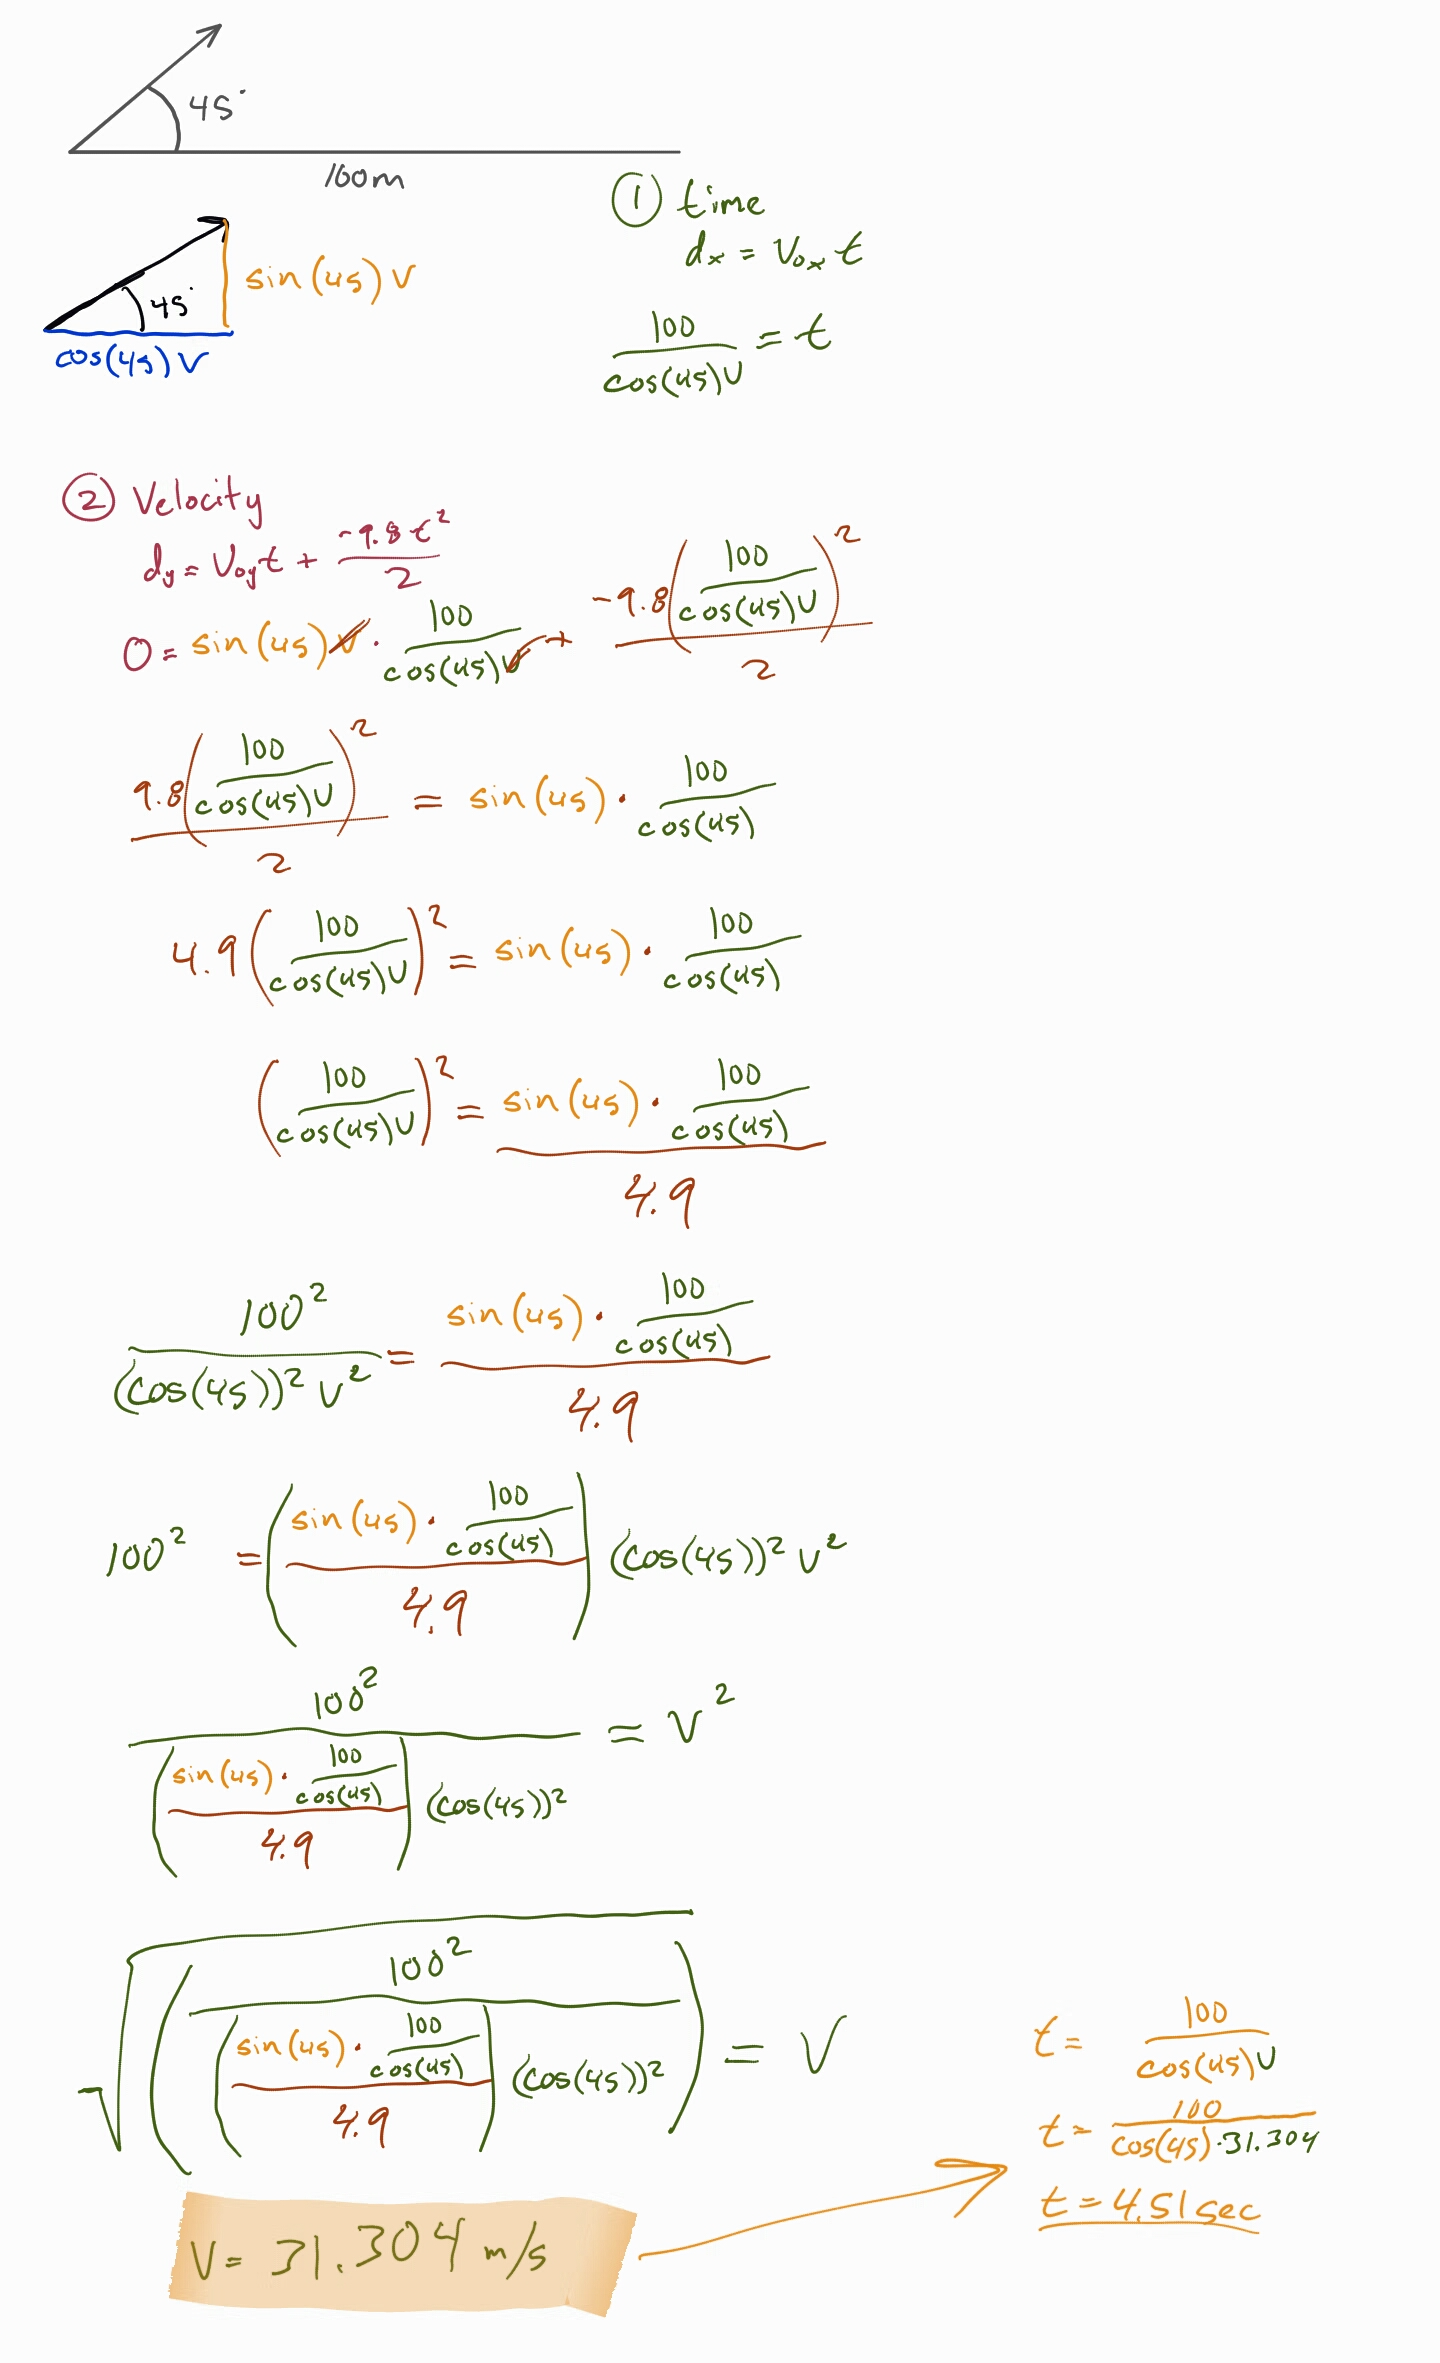 45°
100m
sin(45)V
45°
cos(45)V
① time
dₓ = V₀ₓ t
100/(cos(45)V) = t
② Velocity
d_y = V₀y t + (-9.8t²)/2
0 = sin(45)V · 100/(cos(45)V) + (-9.8(100/(cos(45)V))²)/2
(9.8(100/(cos(45)V))²)/2 = sin(45) · 100/cos(45)
4.9(100/(cos(45)V))² = sin(45) · 100/cos(45)
(100/(cos(45)V))² = (sin(45) · 100/cos(45))/4.9
100²/((cos(45))² V²) = (sin(45) · 100/cos(45))/4.9
100² = ((sin(45) · 100/cos(45))/4.9) (cos(45))² V²
100²/(((sin(45) · 100/cos(45))/4.9) (cos(45))²) = V²
√(100²/(((sin(45) · 100/cos(45))/4.9) (cos(45))²)) = V
V = 31.304 m/s
t = 100/(cos(45)V)
t = 100/(cos(45) · 31.304)
t = 4.51 sec